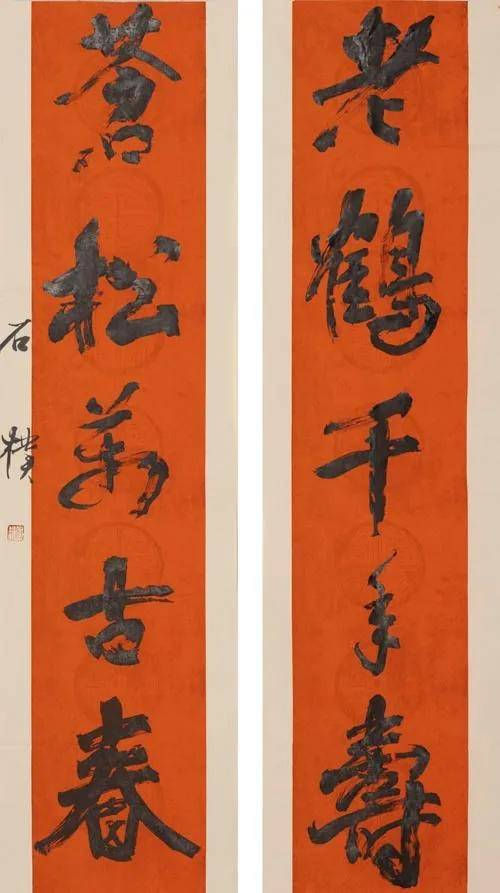 老鶴千年壽
蒼松萬古春
石樸